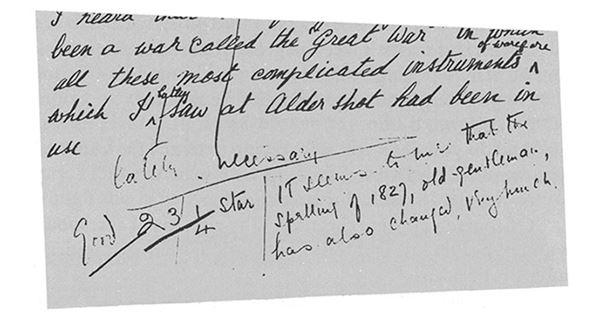 I heard that
been a war called the "Great War" in which
of warfare
all these most complicated instruments ^
lately
which I ^ saw at Aldershot had been in
use
lately necessary
Good 23 1/4 Star
It seems to me that the
spelling of 1827, old gentleman,
has also changed, very much.